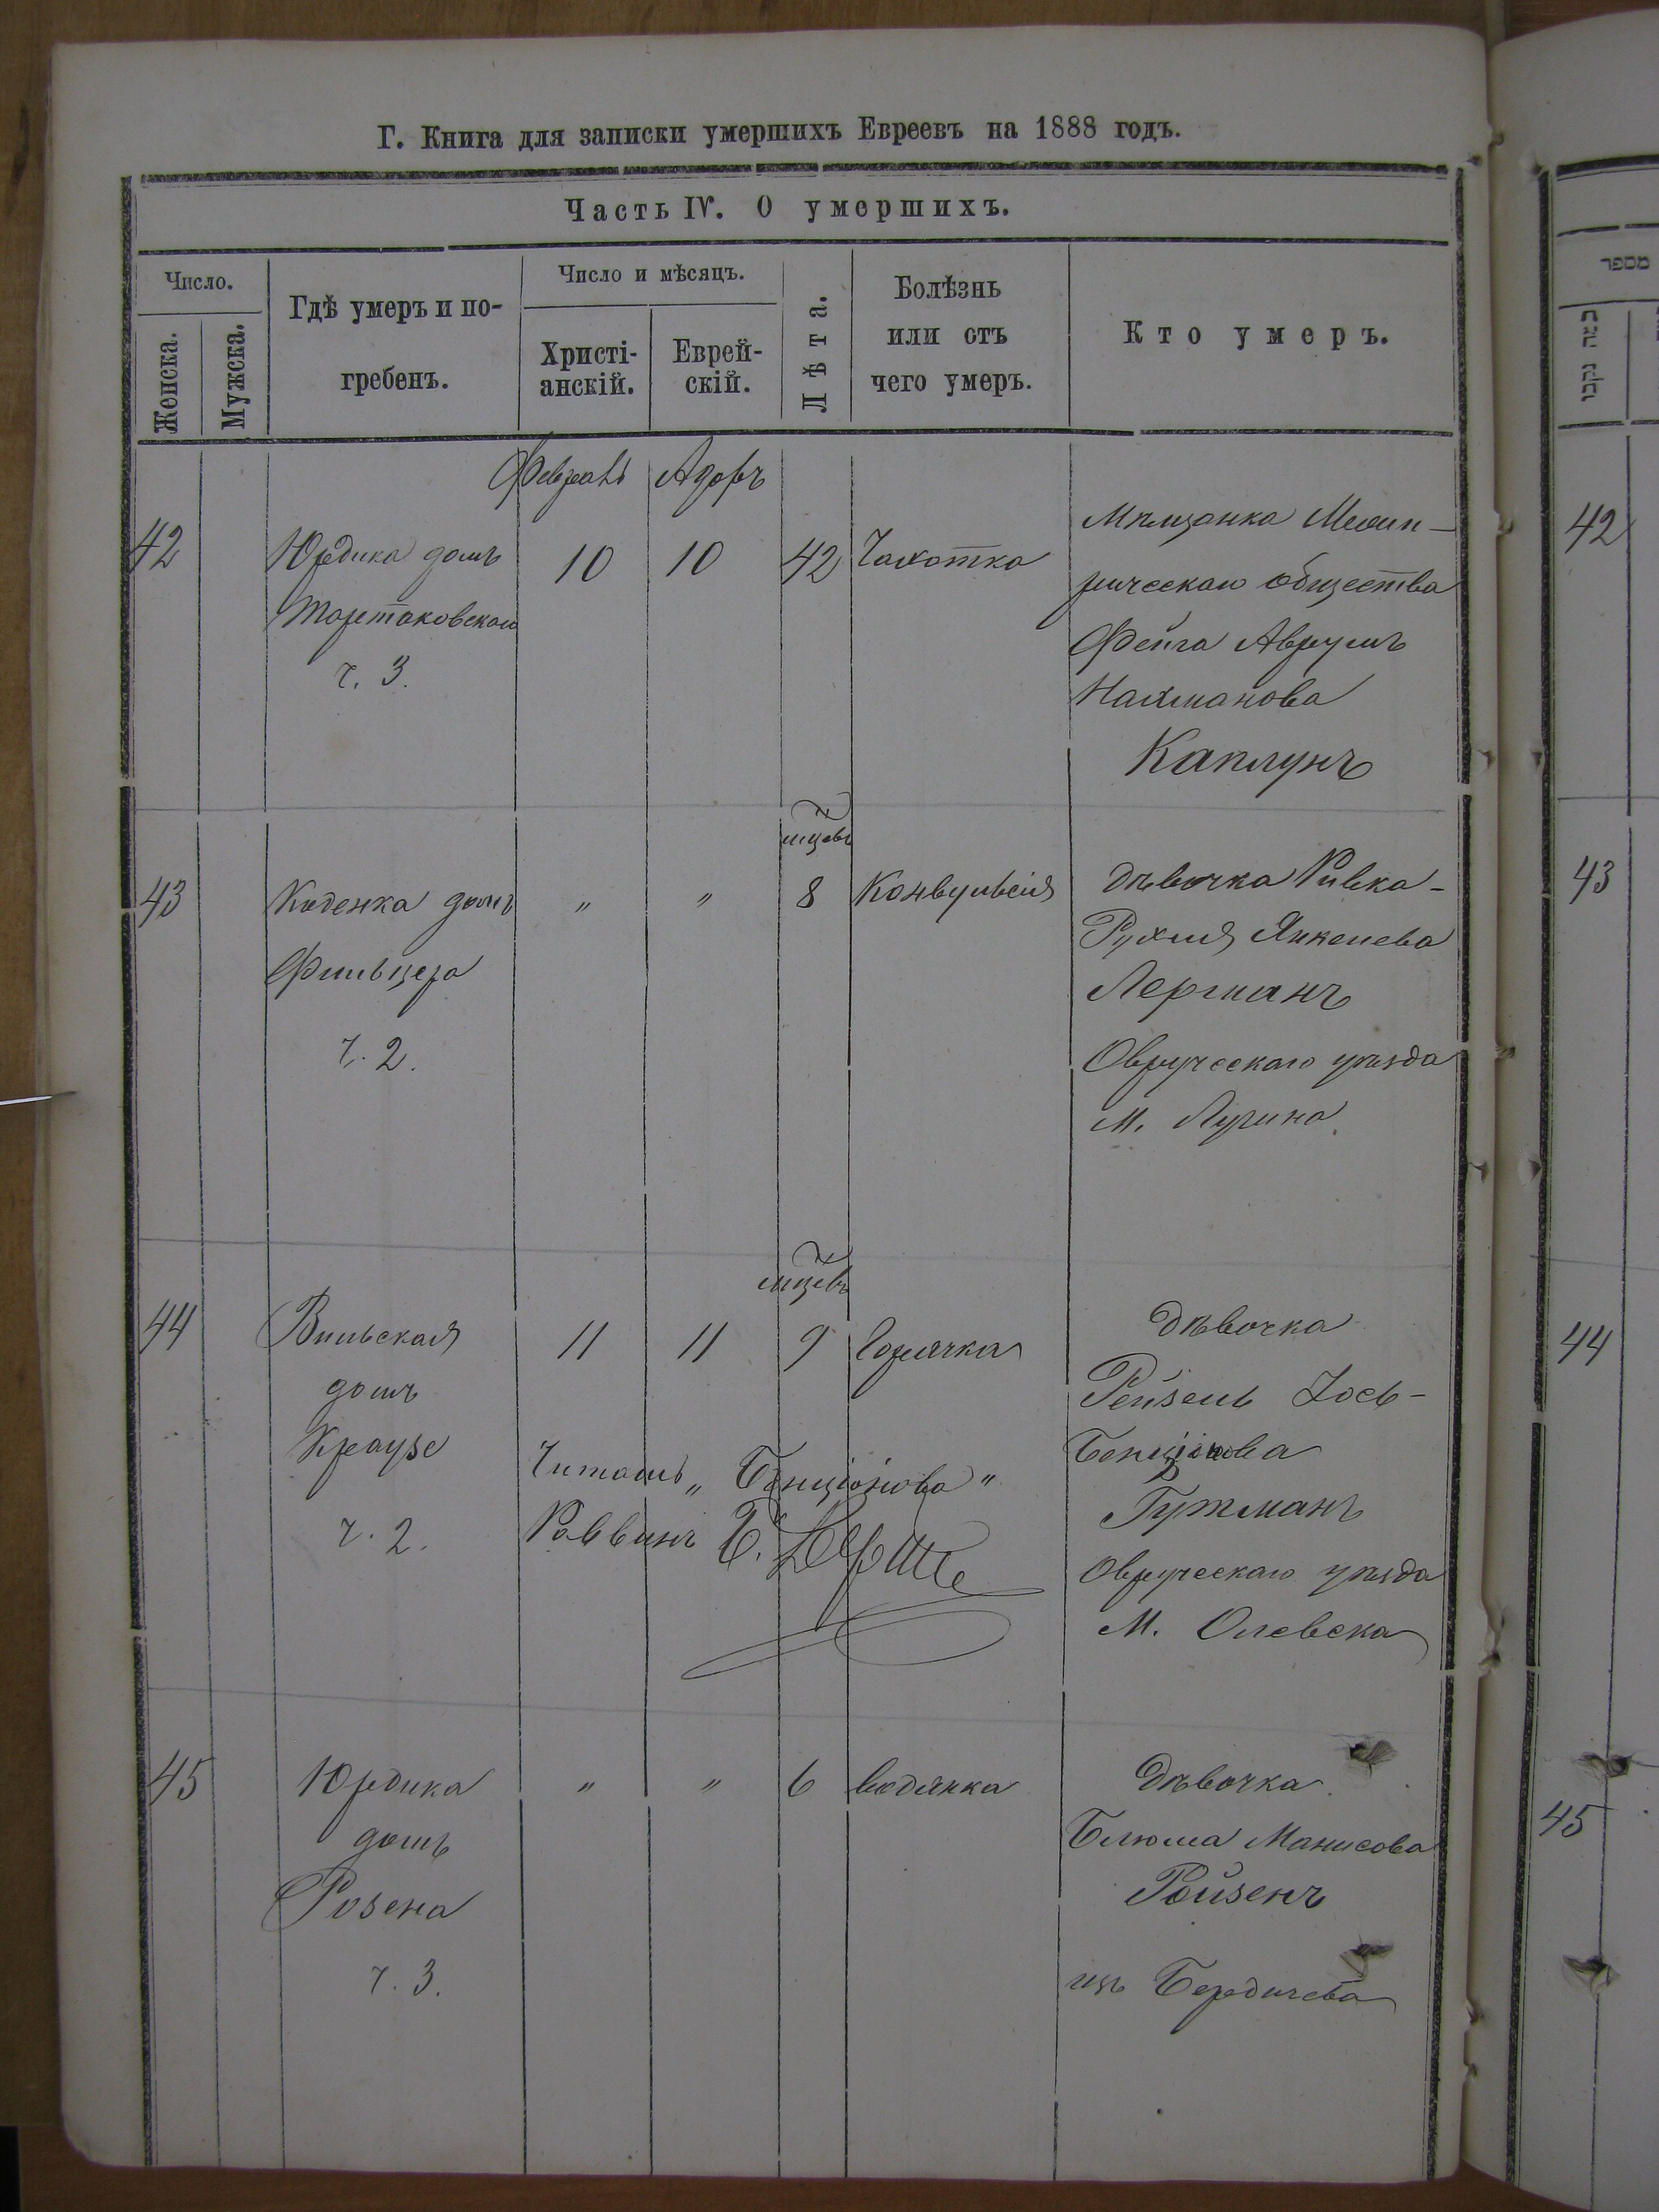 Г. Книга для записки умершихъ Евреевъ на 1888 годъ.
Часть IV. О умершихъ.
Число.
Женска.
Мужска.
Гдѣ умеръ и по-
гребенъ.
Число и мѣсяцъ.
Христі-
анскій.
Еврей-
скій.
Лѣта.
Болѣзнь
или отъ
чего умеръ.
Кто умеръ.
Адоръ
42
Юрдика домъ
Тартаковскаго
ч. 3.
10
10
42
Чахотка
Мѣщанка
общества
Фейга Аврумъ
Нахманова
Каплунъ
43
Коденка домъ
Фильцера
ч. 2.
"
"
мцевъ
8
Конвульсія
дѣвочка Ривка-
Рухля Янкелева
Лерманъ
Овручскаго уѣзда
М. Лугина
44
Вильская
домъ
Краузе
ч. 2.
11
11
мцевъ
9
Горячка
Дѣвочка
Рейзель Іось-
Бенціонова
Гутманъ
Овручскаго уѣзда
М. Олевска
Читать „Бенціонова"
Раввинъ
45
Юрдика
домъ
Розена
ч. 3.
"
"
6
водянка
Дѣвочка
Блюма Манисова
Ройзенъ
изъ Бердичева
מספר
42
43
44
45